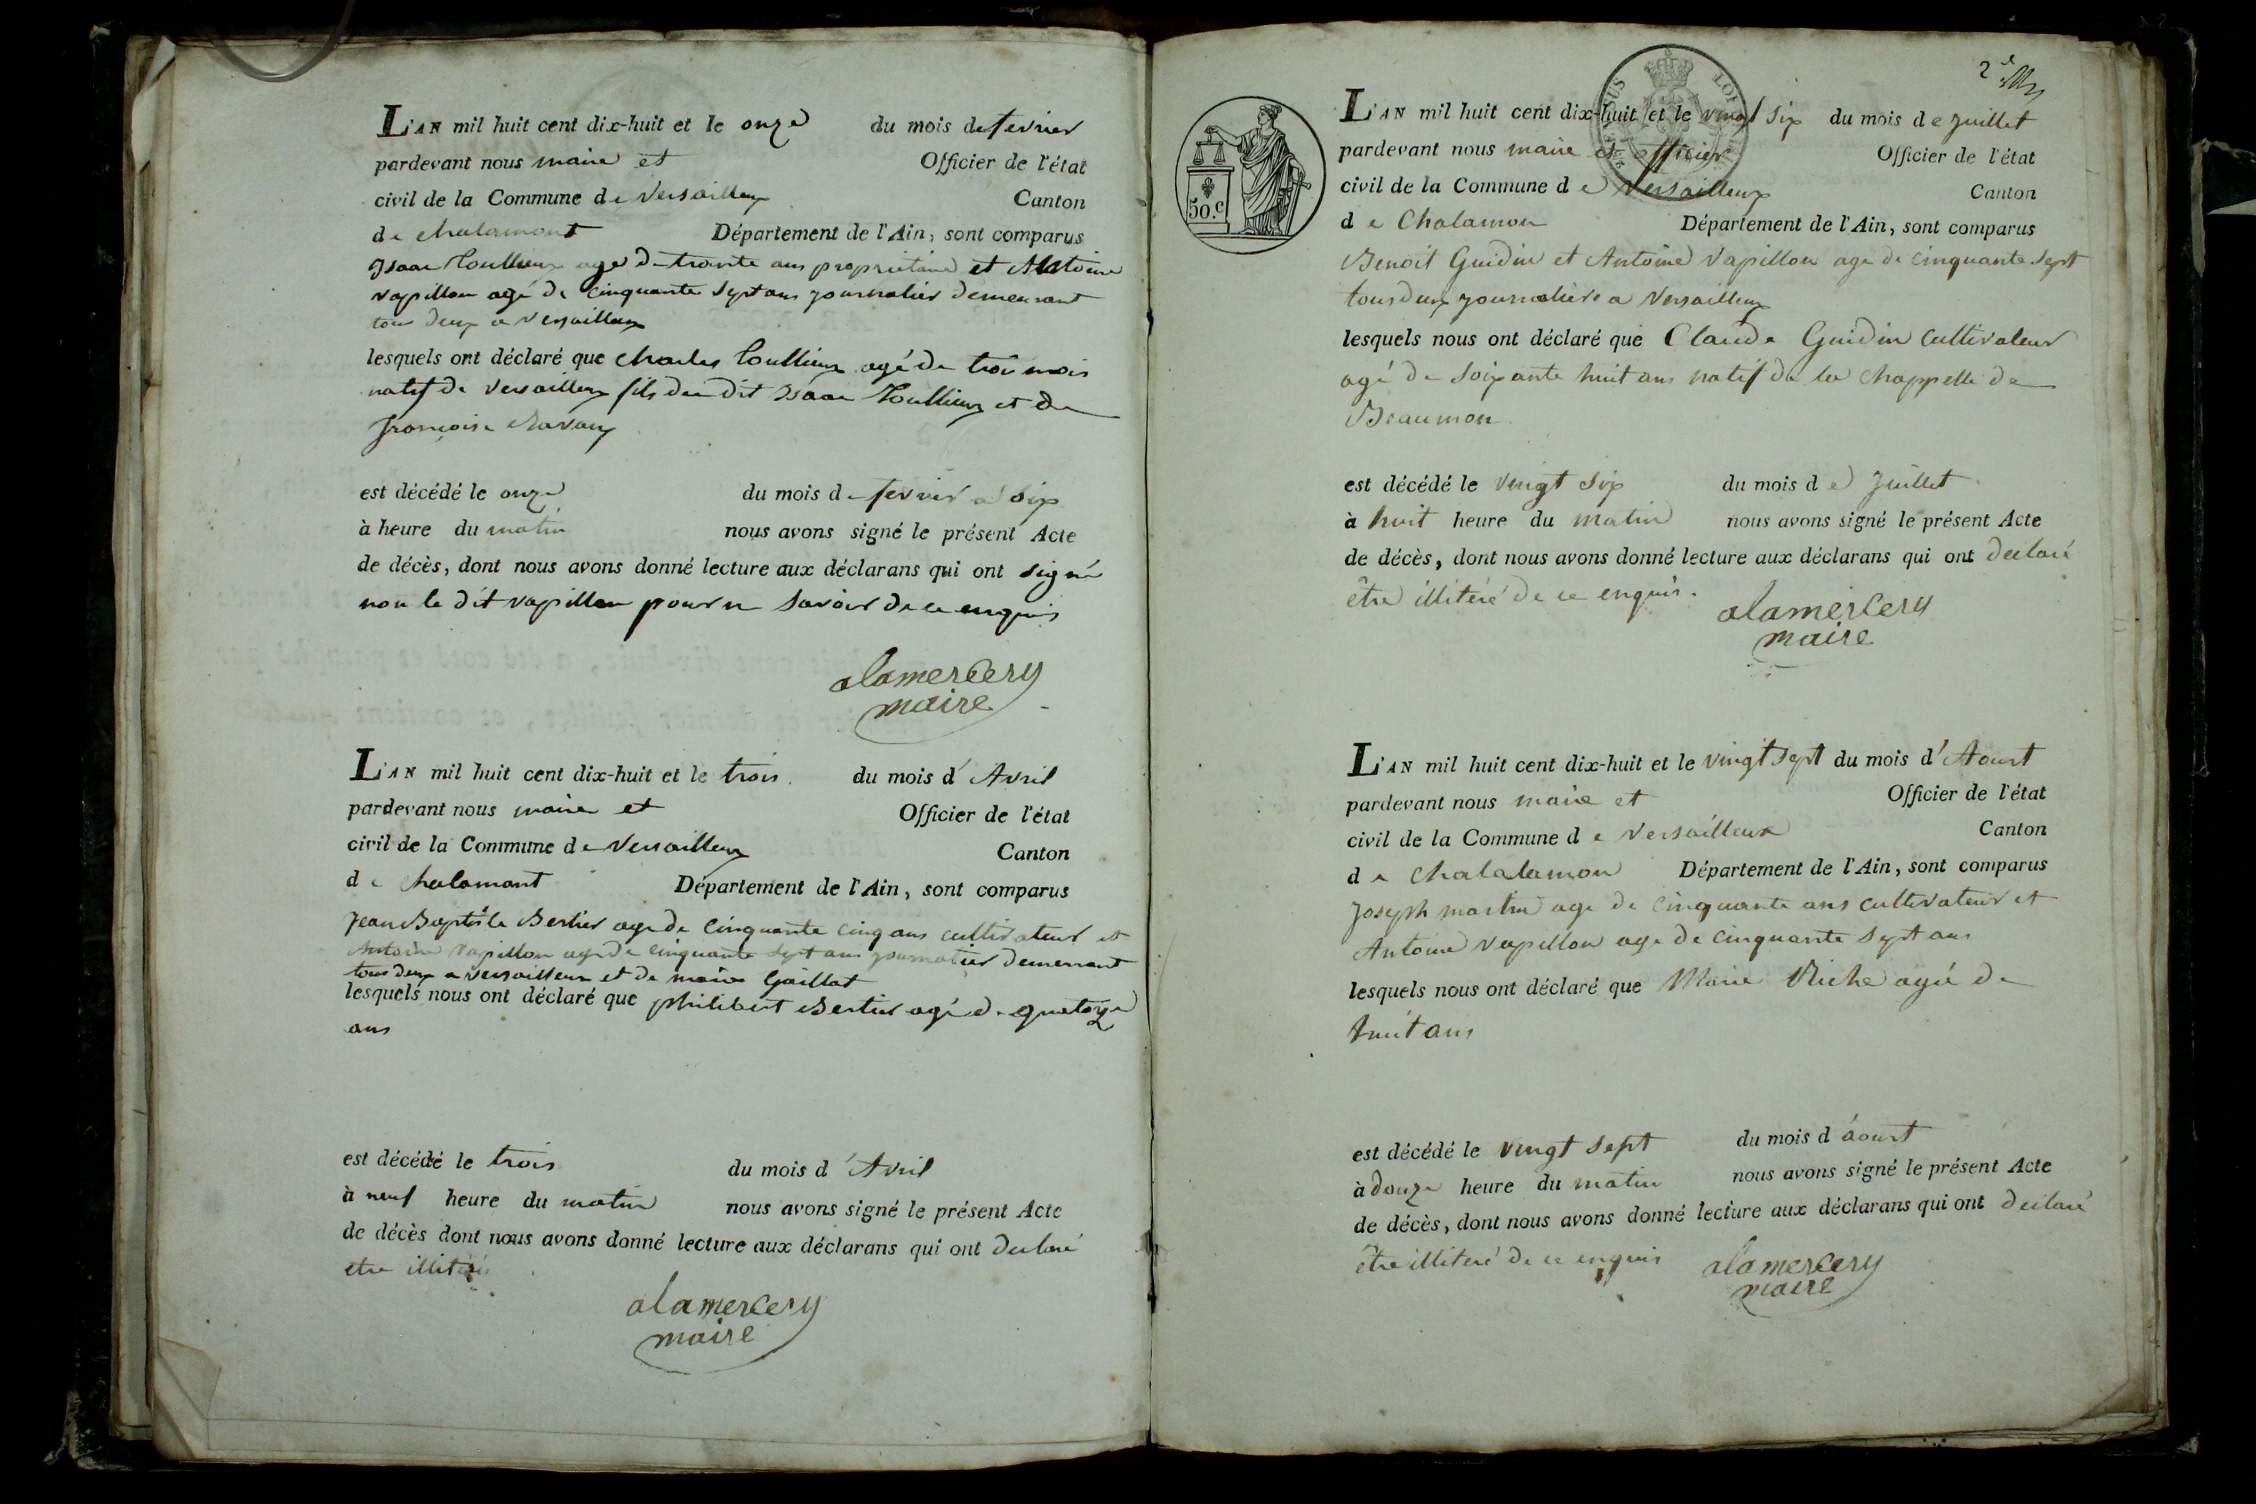 L'AN mil huit cent dix-huit et le onze du mois de fevrier
pardevant nous maire et Officier de l'état
civil de la Commune de Versailleux Canton
de chalamont Département de l'Ain, sont comparus
Isaac Toullieux age de trante ans propriétaire et Antoine
vapillon agé de cinquante sept ans journalier demeurant
tous deux a versailleux
lesquels ont déclaré que charles Toullieux agé de troi mois
natif de versailleux fils du dit Isaac Toullieux et de
françoise
est décédé le onze du mois de fevrier a six
à heure du matin nous avons signé le présent Acte
de décès, dont nous avons donné lecture aux déclarans qui ont signé
non le dit vapillon pour ne savoir de ce enquis
alamercery
maire
L'AN mil huit cent dix-huit et le trois du mois d'Avril
pardevant nous maire et Officier de l'état
civil de la Commune de versailleux Canton
de chalamont Département de l'Ain, sont comparus
jean Baptiste Bertier age de cinquante cinq ans cultivateur et
Antoine vapillon age de cinquante sept ans journalier demeurant
tous deux a versailleux et de marie Gaillat
lesquels nous ont déclaré que philibert Bertier agé de quatoze
ans
est décédé le trois du mois d'Avril
à neuf heure du matin nous avons signé le présent Acte
de décès dont nous avons donné lecture aux déclarans qui ont declaré
etre illitéré
alamercery
maire
2e
50.c
L'AN mil huit cent dix-huit et le vingt six du mois de juillet
pardevant nous maire et officier Officier de l'état
civil de la Commune de Versailleux Canton
de Chalamon Département de l'Ain, sont comparus
Benoit Guidin et Antoine Vapillon age de cinquante sept
tous deux journaliers a Versailleux
lesquels nous ont déclaré que Claude Guidin cultivateur
agé de soixante huit ans natif de la chappelle de
Beaumon
est décédé le vingt six du mois de juillet
à huit heure du matin nous avons signé le présent Acte
de décès, dont nous avons donné lecture aux déclarans qui ont declaré
être illiteré de ce enquis.
alamercery
maire
L'AN mil huit cent dix-huit et le vingt sept du mois d'Aoust
pardevant nous maire et Officier de l'état
civil de la Commune de versailleux Canton
de chalalamon Département de l'Ain, sont comparus
joseph martin age de cinquante ans cultivateur et
Antoine vapillon age de cinquante sept ans
lesquels nous ont déclaré que Marie Riche agée de
huit ans
est décédé le vingt sept du mois d'aoust
à douze heure du matin nous avons signé le présent Acte
de décès, dont nous avons donné lecture aux déclarans qui ont declaré
être illiteré de ce enquis
alamercery
maire